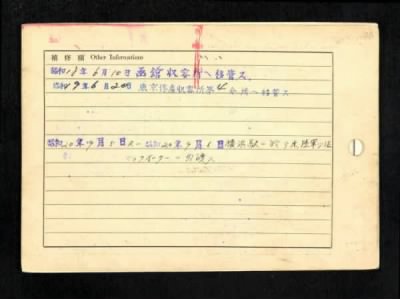 補修欄 Other Informations
昭和18年6月10日函館収容所へ移管ス
昭和19年6月20日東京俘虜収容所第4分所へ移管ス
昭和20年9月5日 昭和20年9月6日横浜 於テ米陸軍
引渡ス